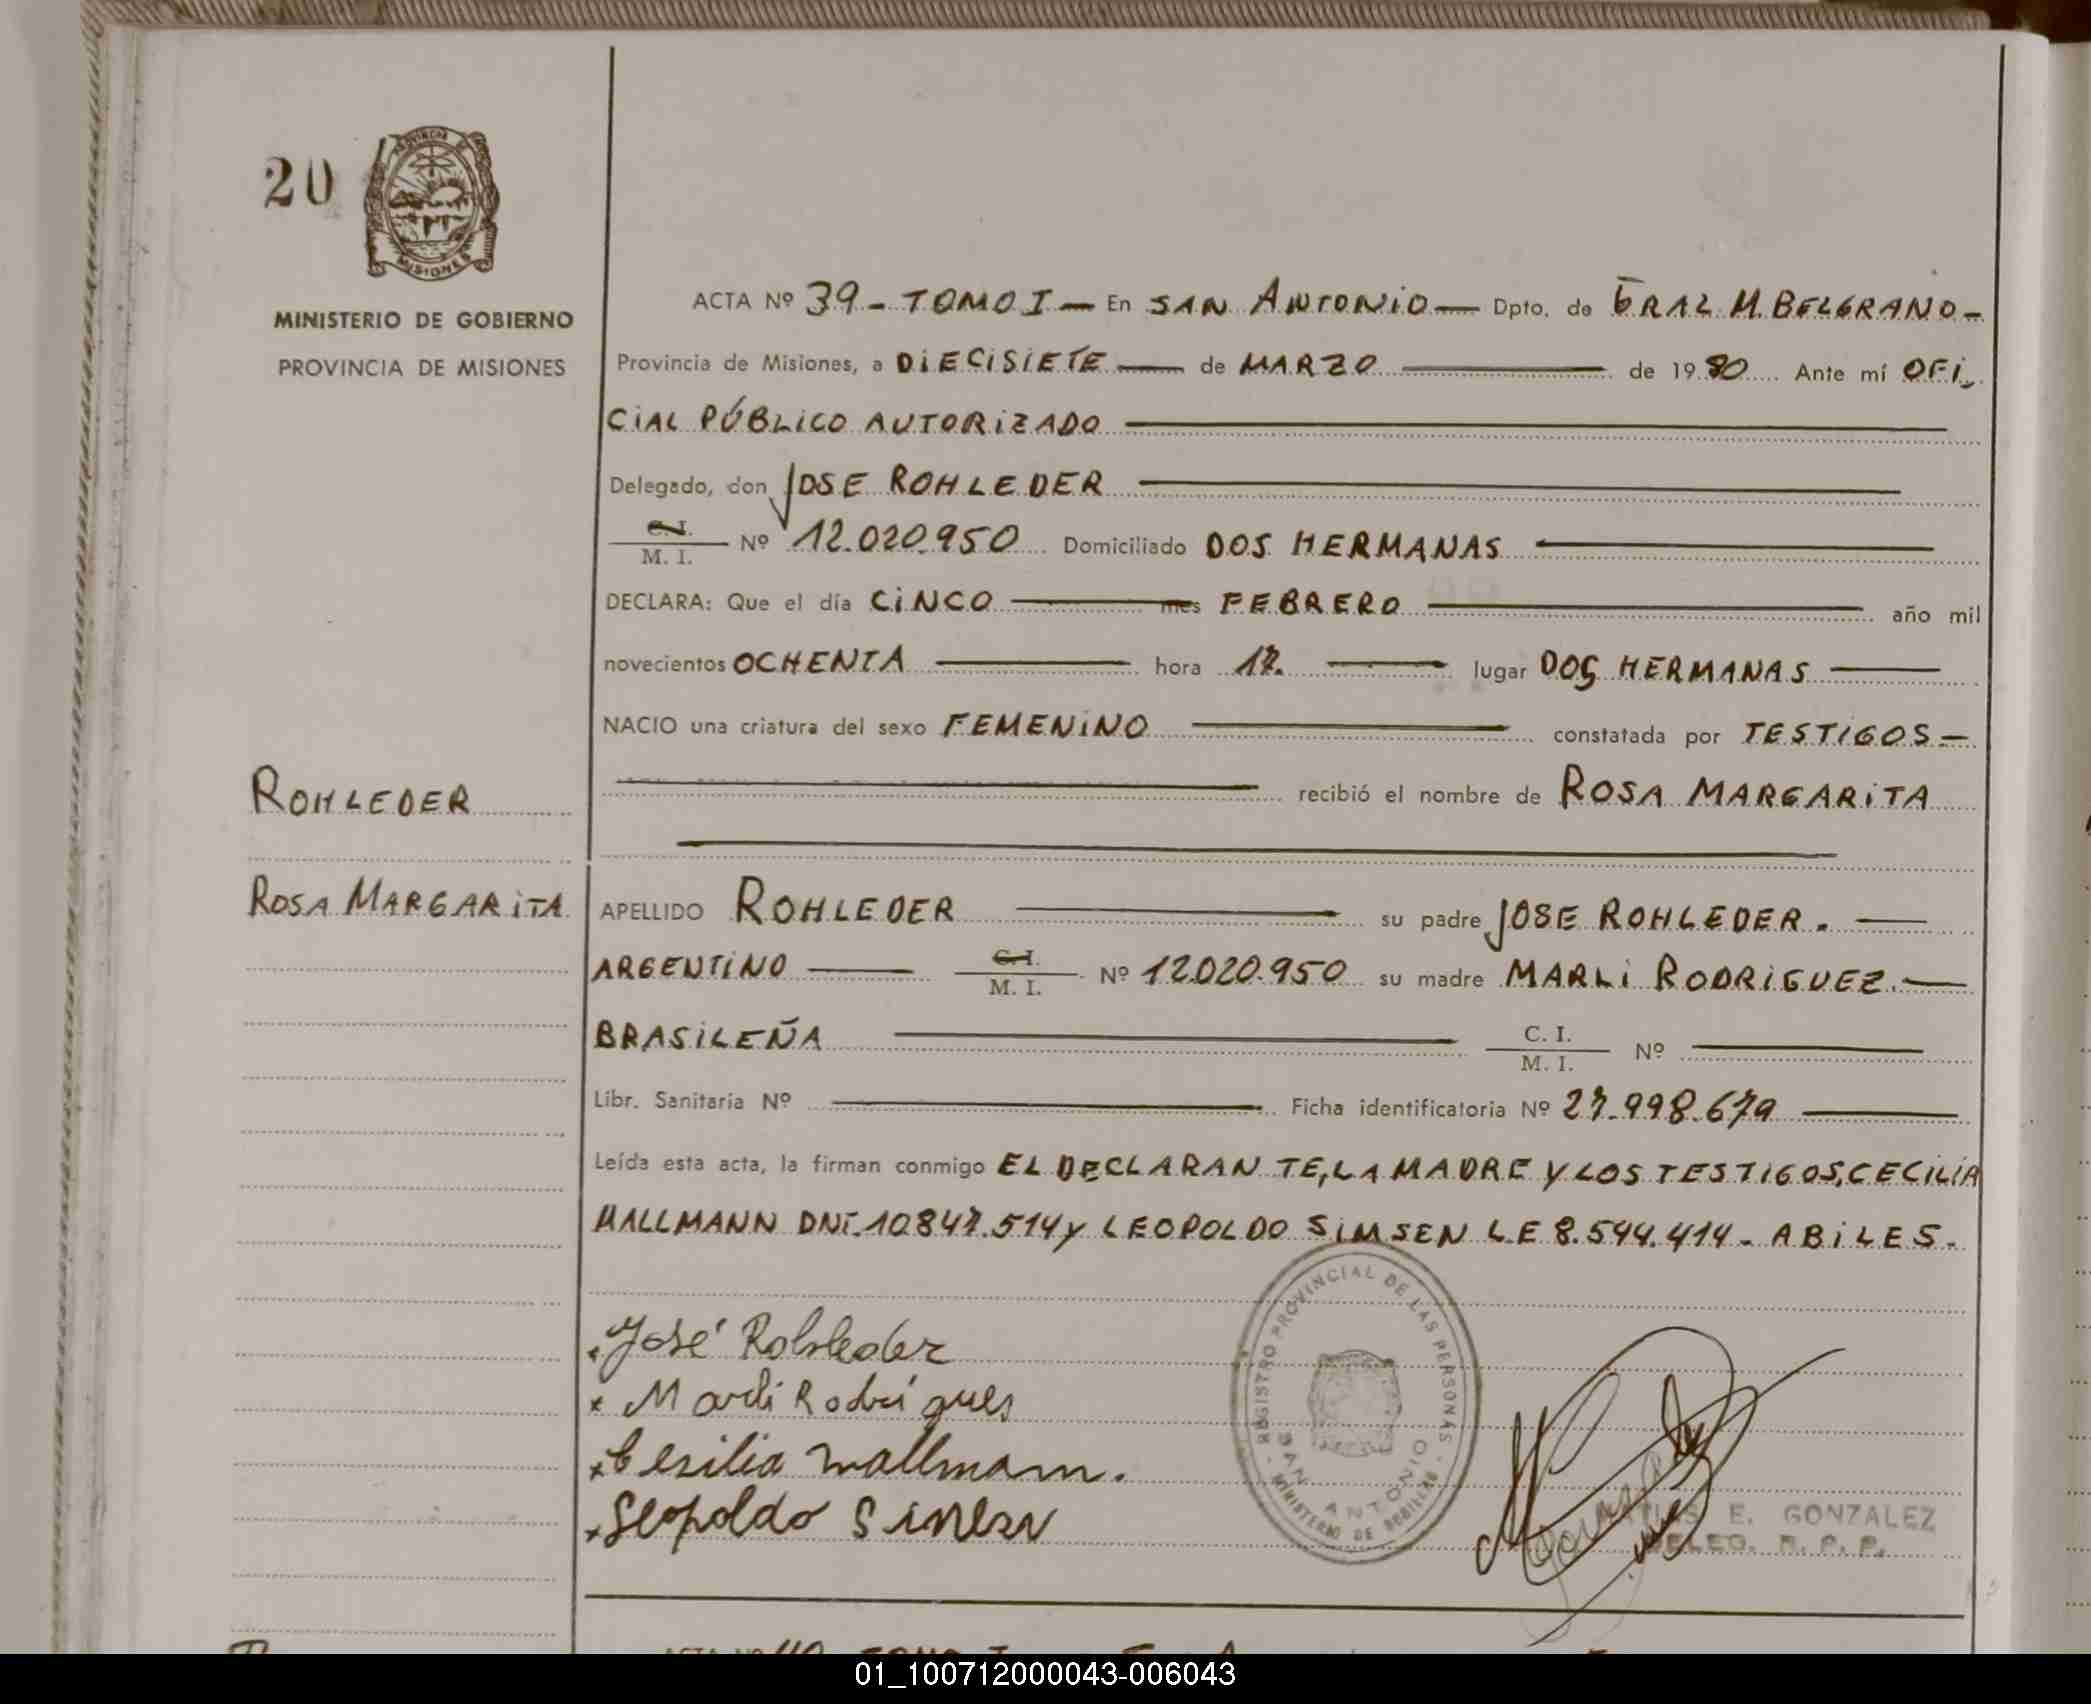 20
PROVINCIA DE
MISIONES
MINISTERIO DE GOBIERNO
PROVINCIA DE MISIONES
ROHLEDER
ROSA MARGARITA
ACTA Nº 39 - TOMO I — En SAN ANTONIO — Dpto. de GRAL M. BELGRANO -
Provincia de Misiones, a DIECISIETE — de MARZO — de 1980 Ante mí OFI-
CIAL PÚBLICO AUTORIZADO —
Delegado, don JOSE ROHLEDER —
C. I.
M. I. Nº 12.020.950 Domiciliado DOS HERMANAS —
DECLARA: Que el día CINCO — mes FEBRERO — año mil
novecientos OCHENTA — hora 17. — lugar DOS HERMANAS —
NACIO una criatura del sexo FEMENINO — constatada por TESTIGOS -
— recibió el nombre de ROSA MARGARITA
APELLIDO ROHLEDER — su padre JOSE ROHLEDER. —
ARGENTINO — C. I.
M. I. Nº 12.020.950 su madre MARLI RODRIGUEZ. —
BRASILEÑA — C. I.
M. I. Nº —
Libr. Sanitaria Nº — Ficha identificatoria Nº 27.998.679 —
Leída esta acta, la firman conmigo EL DECLARANTE, LA MADRE Y LOS TESTIGOS, CECILIA
WALLMANN DNI. 10.847.514 y LEOPOLDO SIMSEN L.E 8.544.414 - ABILES -
José Rohleder
Marli Rodrígues
Cesilia Wallmam.
Leopoldo Simsen
REGISTRO PROVINCIAL DE LAS PERSONAS
SAN ANTONIO
- MINISTERIO DE GOBIERNO -
MATIAS E. GONZALEZ
DELEG. R. P. P.
ACTA Nº 40 TOMO I
01_100712000043-006043